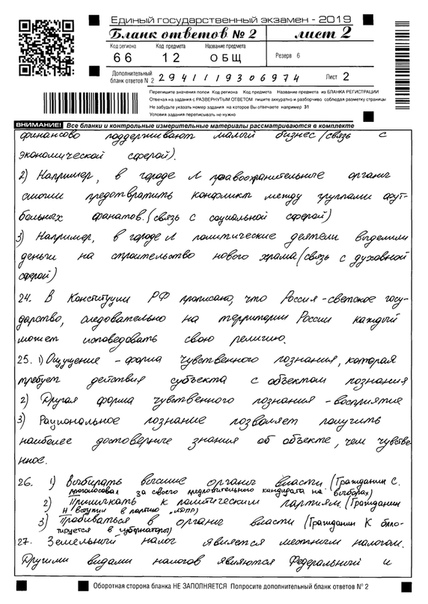 Единый государственный экзамен - 2019
Бланк ответов № 2 лист 2
Код региона Код предмета Название предмета
66 12 ОБЩ Резерв 6
Дополнительный бланк ответов № 2 2941119306974 Лист 2
Перепишите значения полей Код региона Код предмета Название предмета из БЛАНКА РЕГИСТРАЦИИ
Отвечая на задания с РАЗВЕРНУТЫМ ОТВЕТОМ пишите аккуратно и разборчиво соблюдая разметку страницы
Не забудьте указать номер задания на которое Вы отвечаете например 31
Условия задания переписывать не нужно
ВНИМАНИЕ! Все бланки и контрольные измерительные материалы рассматриваются в комплекте
финансово поддерживают малый бизнес (связь с
экономической сферой).
2) Например, в городе N правоохранительные органы
смогли предотвратить конфликт между группами фут-
больных фанатов. (связь с социальной сферой)
3) Например, в городе N политические деятели выделили
деньги на строительство нового храма (связь с духовной
сферой)
24. В Конституции РФ прописано, что Россия - светское госу-
дарство, следовательно на территории России каждый
может исповедовать свою религию.
25. 1) Ощущение - форма чувственного познания, которая
требует действия субъекта с объектом познания
2) Другая форма чувственного познания - восприятие
3) Рациональное познание позволяет получить
наиболее достоверные знания об объекте, чем чувствен-
ное.
26. 1) Выбирать высшие органы власти (Гражданин С.
проголосовал за своего кандидата на выборах)
2) Примыкать к политическим партиям (Гражданин
Н вступил в партию
3) Пробиваться в органы власти (Гражданин К бало-
тируется в губернаторы)
27. Земельный налог является местным налогом.
Другими видами налогов являются Федеральный и
Оборотная сторона бланка НЕ ЗАПОЛНЯЕТСЯ Попросите дополнительный бланк ответов № 2